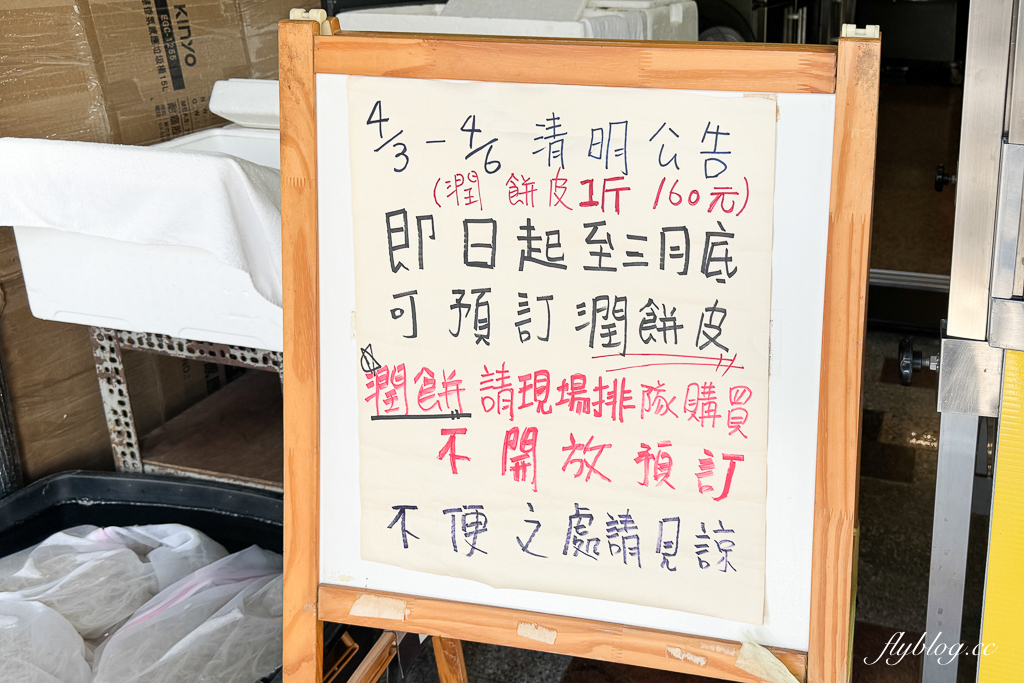 KINYO
EGC-1255
4/3-4/6 清明公告
(潤餅皮1斤 160元)
即日起至三月底
可預訂潤餅皮
☆潤餅請現場排隊購買
不開放預訂
不便之處請見諒
flyblog.cc